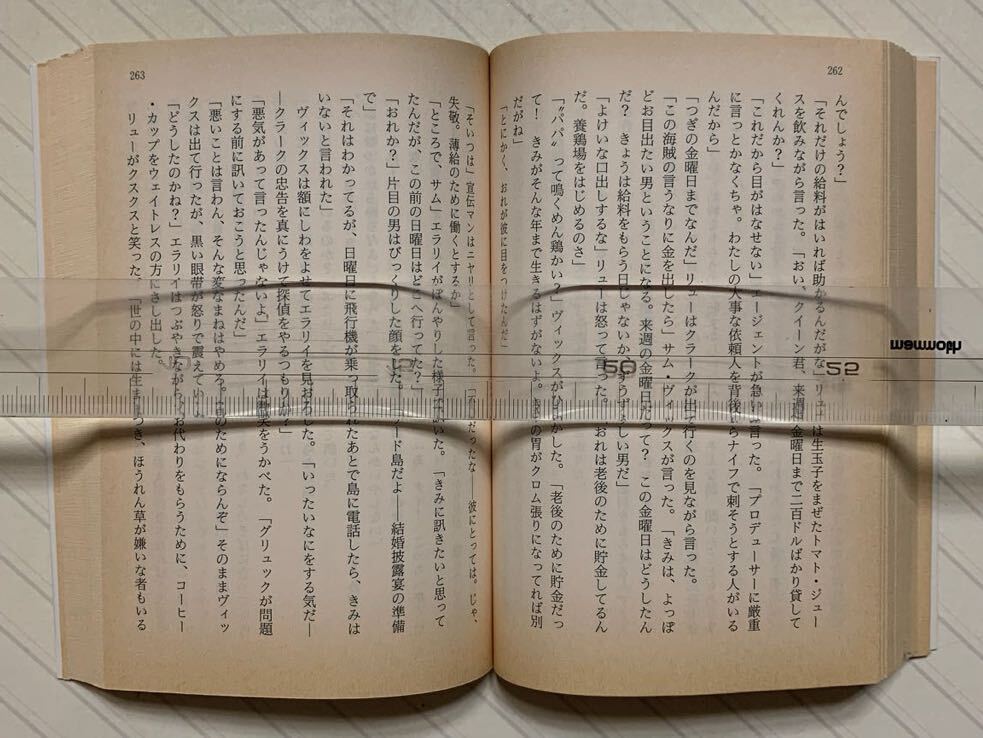 262
んでしょう？」
「それだけの給料がはいれば助かるんだがな」リューは生玉子をまぜたトマト・ジュー
スを飲みながら言った。「おい、クイーン君、来週の金曜日まで二百ドルばかり貸して
くれんか？」
「これだから目がはなせない」エージェントが急いで言った。「プロデューサーに厳重
に言っとかなくちゃ。わたしの大事な依頼人を背後からナイフで刺そうとする人がいる
んだから」
「つぎの金曜日までなんだ」リューはクラークが出て行くのを見ながら言った。
「この海賊の言うなりに金を出したら」サム・ヴィックスが言った。「きみは、よっぽ
どお目出たい男ということになる。来週の金曜日だって？ この金曜日はどうしたん
だ？ きょうは給料をもらう日じゃないか。ずうずうしい男だ」
「よけいな口出しするな」リューは怒って言った。「おれは老後のために貯金してるん
だ。養鶏場をはじめるのさ」
「〝パパ〟って鳴くめん鶏かい？」ヴィックスがひやかした。「老後のために貯金だっ
て！ きみがそんな年まで生きるはずがないよ。きみの胃がクロム張りになってれば別
だがね」
「とにかく、おれが彼に目をつけたんだ」
263
「そいつは」宣伝マンはニヤリとして言った。「 だったな――彼にとっては。じゃ、
失敬。薄給のために働くとするか」
「ところで、サム」エラリイがぼんやりした様子で訊いた。「きみに訊きたいと思って
たんだが、この前の日曜日はどこへ行ってた？」
「おれか？」片目の男はびっくりした顔をした。「 ード島だよ――結婚披露宴の準備
で」
「それはわかってるが、日曜日に飛行機が乗っ取られたあとで島に電話したら、きみは
いないと言われた」
ヴィックスは額にしわをよせてエラリイを見おろした。「いったいなにをする気だ―
―クラークの忠告を真にうけて探偵をやるつもりか？」
「悪気があって言ったんじゃないよ」エラリイは微笑をうかべた。「グリュックが問題
にする前に訊いておこうと思ったんだ」
「悪いことは言わん、そんな変なまねはやめろ。 のためにならんぞ」そのままヴィッ
クスは出て行ったが、黒い眼帯が怒りで震えていた。
「どうしたのかね？」エラリイはつぶやきながら、お代わりをもらうために、コーヒー
・カップをウェイトレスの方にさし出した。
リューがクスクスと笑った。「世の中には生まれつき、ほうれん草が嫌いな者もいる
mammoth
50
52